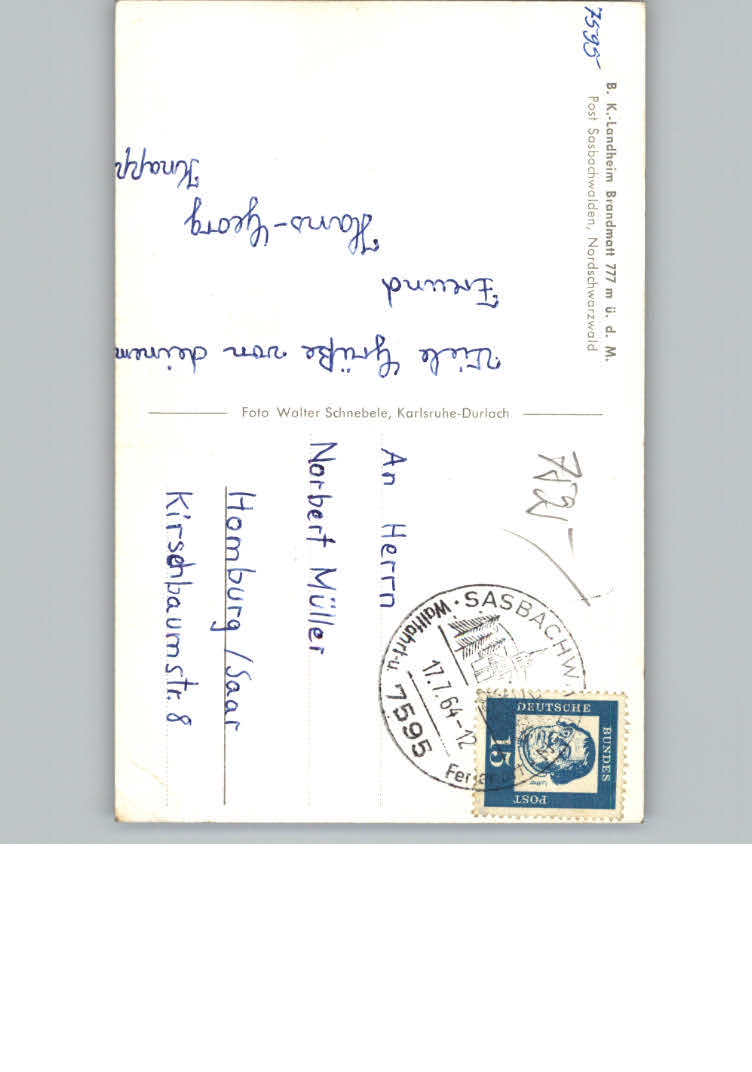 7595
B. K.-Landheim Brandmatt 777 m ü. d. M.
Post Sasbachwalden, Nordschwarzwald
Viele Grüße von deinem
Freund
Hans-Georg
Knapp
Foto Walter Schnebele, Karlsruhe-Durlach
An Herrn
Norbert Müller
Homburg/Saar
Kirschbaumstr. 8
SASBACHW
Wallfahrt-u.
17.7.64-12
7595
DEUTSCHE
BUNDES
POST
15
Luther